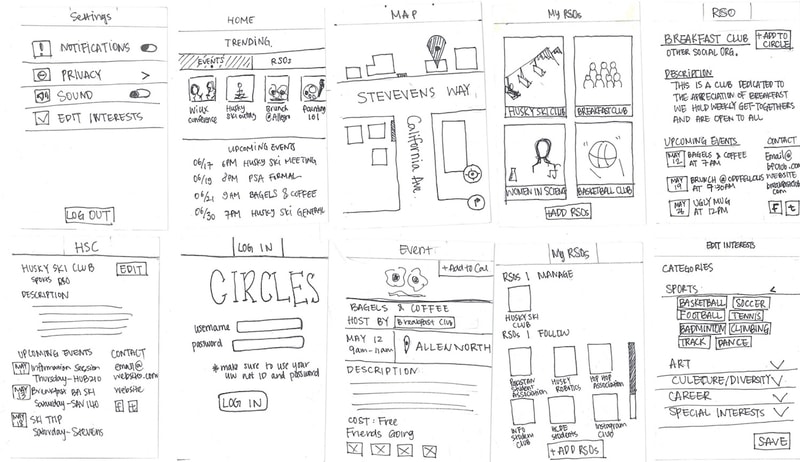 Settings
NOTIFICATIONS
PRIVACY
SOUND
EDIT INTERESTS
LOG OUT
HOME
TRENDING
EVENTS RSOs
WiUX Conference
Husky Ski outing
Brunch @Allegro
Painting 101
UPCOMING EVENTS
06/17 6PM HUSKY SKI MEETING
06/19 8PM PSA FORMAL
06/21 9AM BAGELS & COFFEE
06/30 7PM HUSKY SKI GENERAL
MAP
STEVEVENS WAY
California Ave.
P
My RSOs
HUSKY SKI CLUB
BREAKFAST CLUB
WOMEN IN SCIENCE
BASKETBALL CLUB
+ADD RSOs
RSO
BREAKFAST CLUB
+ADD TO CIRCLE
OTHER SOCIAL ORG.
DESCRIPTION
THIS IS A CLUB DEDICATED TO
THE APPRECIATION OF BREAKFAST
WE HOLD WEEKLY GET-TOGETHERS
AND ARE OPEN TO ALL
UPCOMING EVENTS
MAY 12 BAGELS & COFFEE AT 7AM
MAY 19 BRUNCH @ AT 9:30AM
MAY 26 UGLY MUG AT 12PM
CONTACT
Email@
WEBSITE
f t
HSC
HUSKY SKI CLUB
EDIT
SPORTS RSO
DESCRIPTION
UPCOMING EVENTS
MAY Information Session
Thursday-HUB210
MAY Breakfast BA SKI
Saturday-SAV 140
MAY 18 SKI TRIP
Saturday-Stevens
CONTACT
email@
website.com
website
f t
LOG IN
CIRCLES
username
password
*make sure to use your
UW net ID and password
LOG IN
Event
+Add to Cal
BAGELS & COFFEE
HOST BY Breakfast Club
MAY 12
9am-11am
ALLEN NORTH
DESCRIPTION
COST: Free
Friends Going
My RSOs
RSOs I MANAGE
HUSKY SKI CLUB
RSOs I FOLLOW
PAKISTAN STUDENT ASSOCIATION
HUSKY ROBOTICS
HIP HOP Association
INFO student CLUB
HCDE students
Instagram Club
+ADD RSOs
EDIT INTERESTS
CATEGORIES
SPORTS
BASKETBALL SOCCER
FOOTBALL TENNIS
BADMINTON CLIMBING
TRACK DANCE
ART
CULTURE/DIVERSITY
CAREER
SPECIAL INTERESTS
SAVE